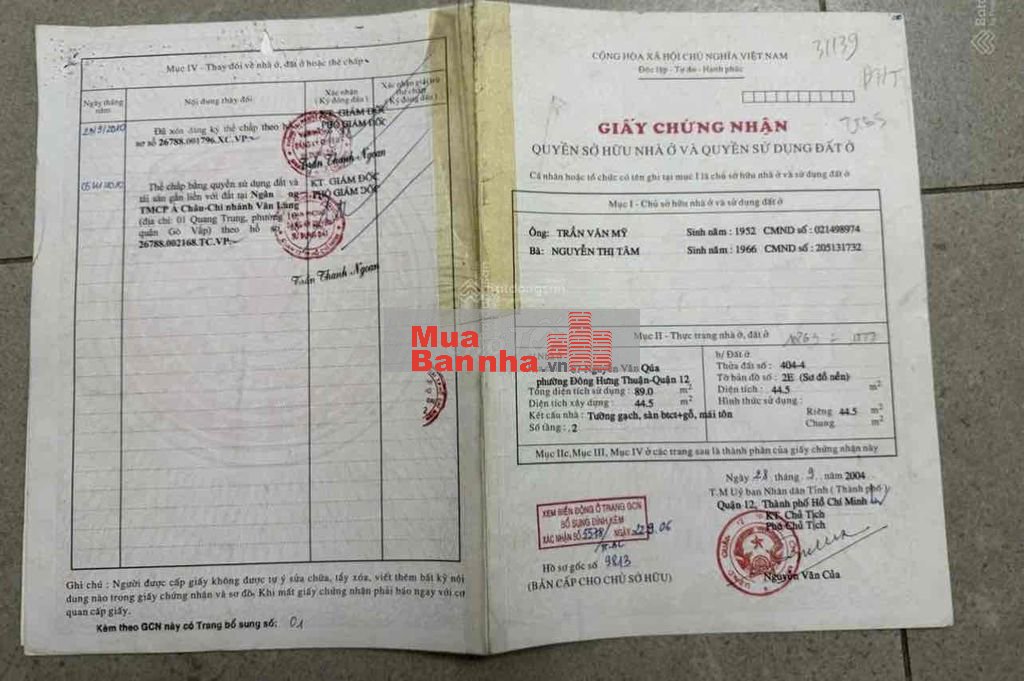 Mục IV - Thay đổi về nhà ở, đất ở hoặc thế chấp
Ngày tháng năm
Nội dung thay đổi
Xác nhận (Ký đóng dấu)
Xác nhận giải trừ thế chấp (Ký đóng dấu)
Đã xóa đăng ký thế chấp theo
sơ số 26788.001796.XC.VP
KT. GIÁM ĐỐC
PHÓ GIÁM ĐỐC
Trần Thanh Ngoan
Thế chấp bằng quyền sử dụng đất và
tài sản gắn liền với đất tại Ngân
TMCP Á Châu-Chi nhánh Văn Lang
(địa chỉ: 01 Quang Trung, phường
quận Gò Vấp) theo hồ
26788.002168.TC.VP
KT. GIÁM ĐỐC
PHÓ GIÁM ĐỐC
Trần Thanh Ngoan
Ghi chú : Người được cấp giấy không được tự ý sửa chữa, tẩy xóa, viết thêm bất kỳ nội
dung nào trong giấy chứng nhận và sơ đồ. Khi mất giấy chứng nhận phải báo ngay với cơ
quan cấp giấy.
Kèm theo GCN này có Trang bổ sung số: 01
CỘNG HÒA XÃ HỘI CHỦ NGHĨA VIỆT NAM
Độc lập - Tự do - Hạnh phúc
31139
GIẤY CHỨNG NHẬN
QUYỀN SỞ HỮU NHÀ Ở VÀ QUYỀN SỬ DỤNG ĐẤT Ở
Cá nhân hoặc tổ chức có tên ghi tại mục I là chủ sở hữu nhà ở và sử dụng đất ở
Mục I - Chủ sở hữu nhà ở và sử dụng đất ở
Ông: TRẦN VĂN MỸ Sinh năm : 1952 CMND số : 021498974
Bà: NGUYỄN THỊ TÂM Sinh năm : 1966 CMND số : 205131732
Mục II - Thực trạng nhà ở, đất ở
Mua
Bannha.vn
Nguyễn Văn Qúa
phường Đông Hưng Thuận-Quận 12
Tổng diện tích sử dụng : 89.0 m2
Diện tích xây dựng : 44.5 m2
Kết cấu nhà : Tường gạch, sàn btct+gỗ, mái tôn
Số tầng : 2
b/ Đất ở:
Thửa đất số : 404-4
Tờ bản đồ số : 2E (Sơ đồ nền)
Diện tích : 44.5 m2
Hình thức sử dụng :
Riêng 44.5 m2
Chung m2
Mục IIc, Mục III, Mục IV ở các trang sau là thành phần của giấy chứng nhận này
Ngày 28 tháng 9 năm 2004
T.M Uỷ ban Nhân dân Tỉnh (Thành phố)
Quận 12, Thành phố Hồ Chí Minh
KT. Chủ Tịch
Phó Chủ Tịch
Nguyễn Văn Của
XEM BIẾN ĐỘNG Ở TRANG GCN
BỔ SUNG ĐÍNH KÈM
XÁC NHẬN SỐ NGÀY 22.9.06
Hồ sơ gốc số 9813
(BẢN CẤP CHO CHỦ SỞ HỮU)